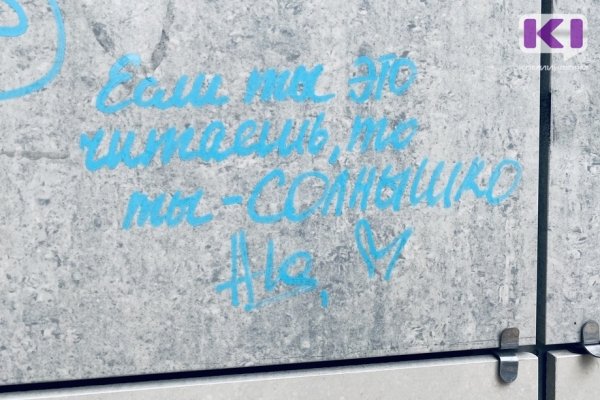 KI
Если ты это
читаешь, то
ты - СОЛНЫШКО